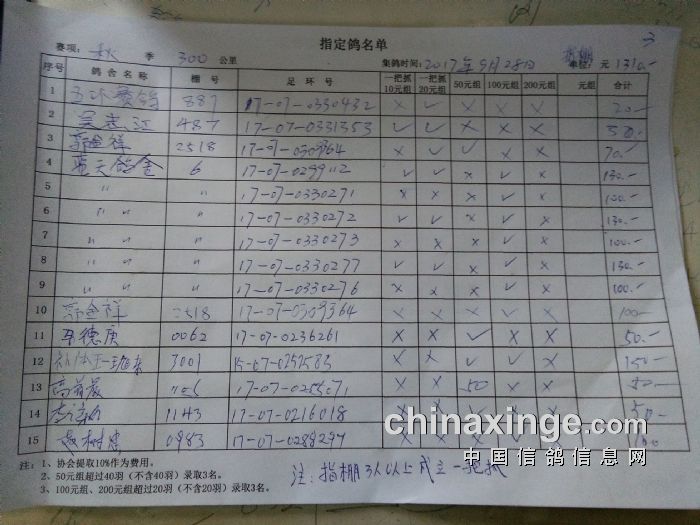 指定鸽名单 3
赛项: 秋 季 300 公里 集鸽时间: 2017年9月28日 指棚 单位: 元 1310.-
序号 鸽舍名称 棚号 足环号 一把抓10元组 一把抓20元组 50元组 100元组 200元组 元组 合计
1 887 17-07-0330432 × ✓ × × × 20.-
2 吴志江 487 17-07-0331353 ✓ ✓ × × × 30.-
3 郭金祥 2518 × ✓ ✓ × × 70.-
4 蓝天鸽舍 6 17-07-0299112 ✓ ✓ × ✓ × 130.-
5 〃 〃 〃 17-07-0330271 × × × ✓ × 100.-
6 〃 〃 〃 17-07-0330272 ✓ ✓ × ✓ × 130.-
7 〃 〃 〃 17-07-0330273 × × × ✓ × 100.-
8 〃 〃 〃 17-07-0330277 ✓ ✓ × ✓ × 130.-
9 〃 〃 〃 17-07-0330276 × × × ✓ × 100.-
10 郭金祥 2518 17-07-0309364 × × × ✓ × 100.-
11 马德庚 0062 17-07-0236261 × × ✓ × × 50.-
12 3001 15-07-0252583 × × ✓ ✓ × 150.-
13 17-07-0255071 × × 50 × × 50.-
14 1143 17-07-0216018 × × 50.-
15 0983 17-07-0288297 × ×
注: 1、协会提取10%作为费用。
2、50元组超过40羽（不含40羽）录取3名。
3、100元组、200元组超过20羽（不含20羽）录取3名。
注: 指棚3人以上成立一把抓
chinaxinge.com
中国信鸽信息网